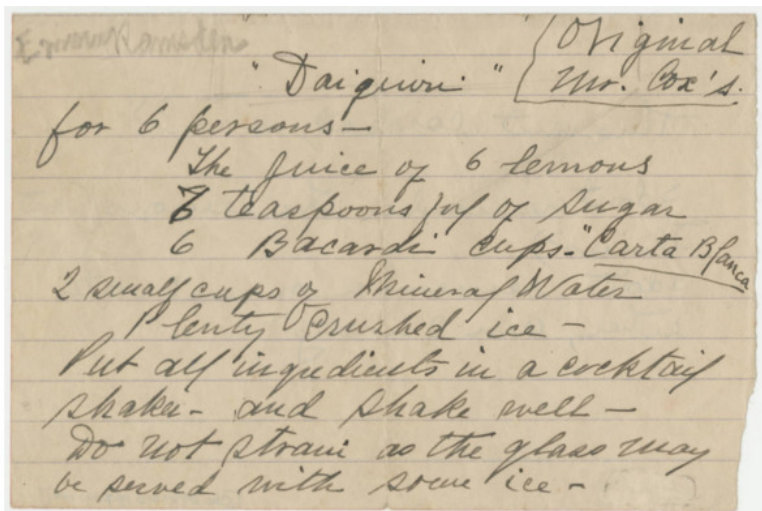 Original
Mr. Cox's.
"Daiquiri"
for 6 persons—
The juice of 6 lemons
6 teaspoonsful of sugar
6 Bacardi cups-"Carta Blanca
2 small cups of Mineral Water
Plenty crushed ice-
Put all ingredients in a cocktail
shaker- and shake well-
Do not strain as the glass may
be served with some ice-